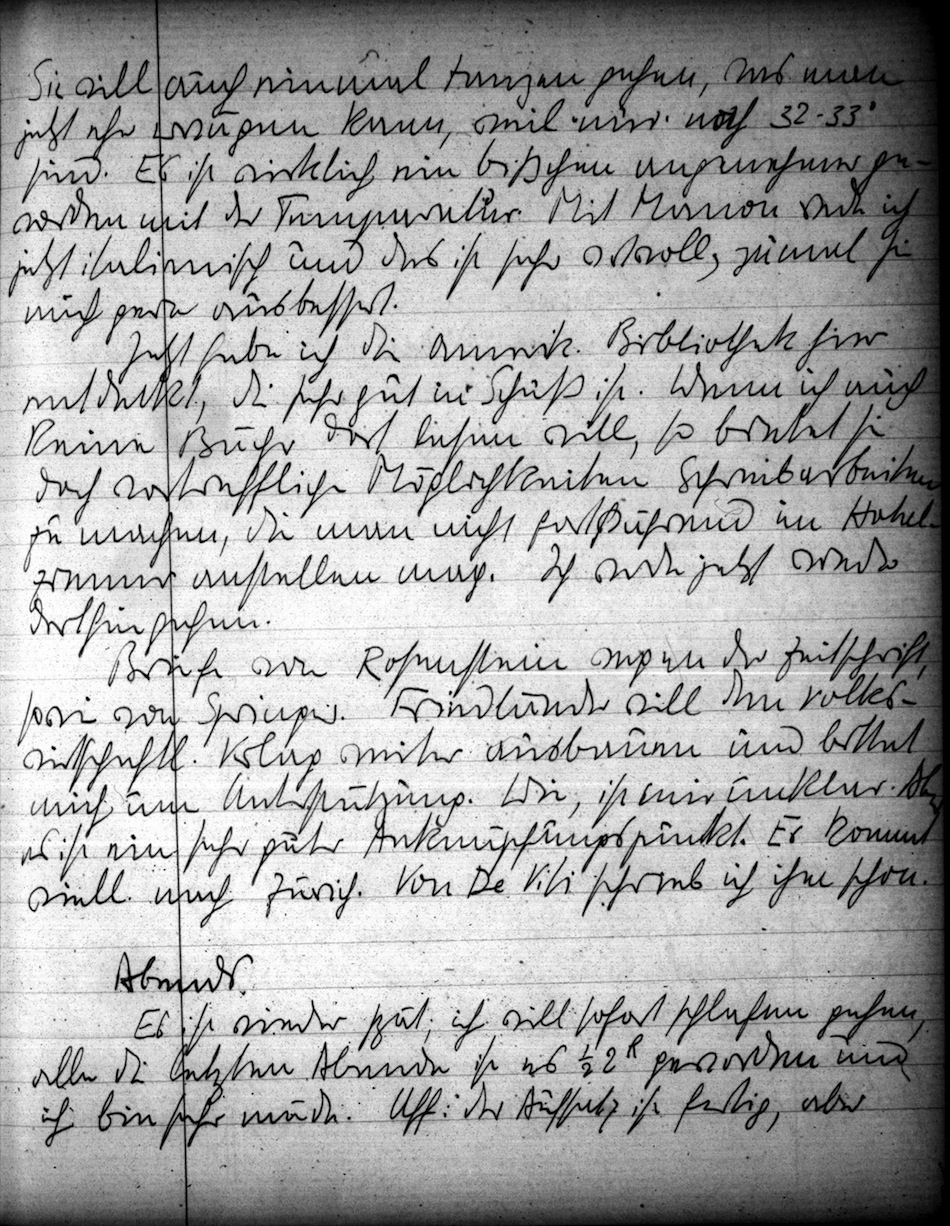 Sie will auch einmal tanzen gehen, was man
jetzt eher wagen kann, weil nur noch 32-33°
sind. Es ist wirklich ein bißchen angenehmer ge-
worden mit der Temperatur. Mit Manon rede ich
jetzt italienisch und das ist sehr wertvoll, zumal sie
mich gern ausbessert.
Jetzt habe ich die amerik. Bibliothek hier
entdeckt, die sehr gut in Schuß ist. Wenn ich auch
keine Bücher dort lesen will, so bietet sie
doch vortreffliche Möglichkeiten Schreibarbeiten
zu machen, die man nicht fortwährend im Hotel-
zimmer anstellen mag. Ich werde jetzt wieder
dorthin gehen.
Briefe von Rosenstein wegen der Zeitschrift,
sowie von Springer. Friedländer will den volks-
wirtschaftl. Verlag weiter ausbauen und bittet
mich um Unterstützung. Wie, ist mir unklar. Aber
es ist ein sehr guter Anknüpfungspunkt. Er kommt
viell. nach Zürich. Von De Viti schrieb ich ihm schon.
Abends.
Es ist wieder spät, ich will sofort schlafen gehen,
alle die letzten Abende ist es ½2 geworden und
ich bin sehr müde. Uff: der Aufsatz ist fertig, aber